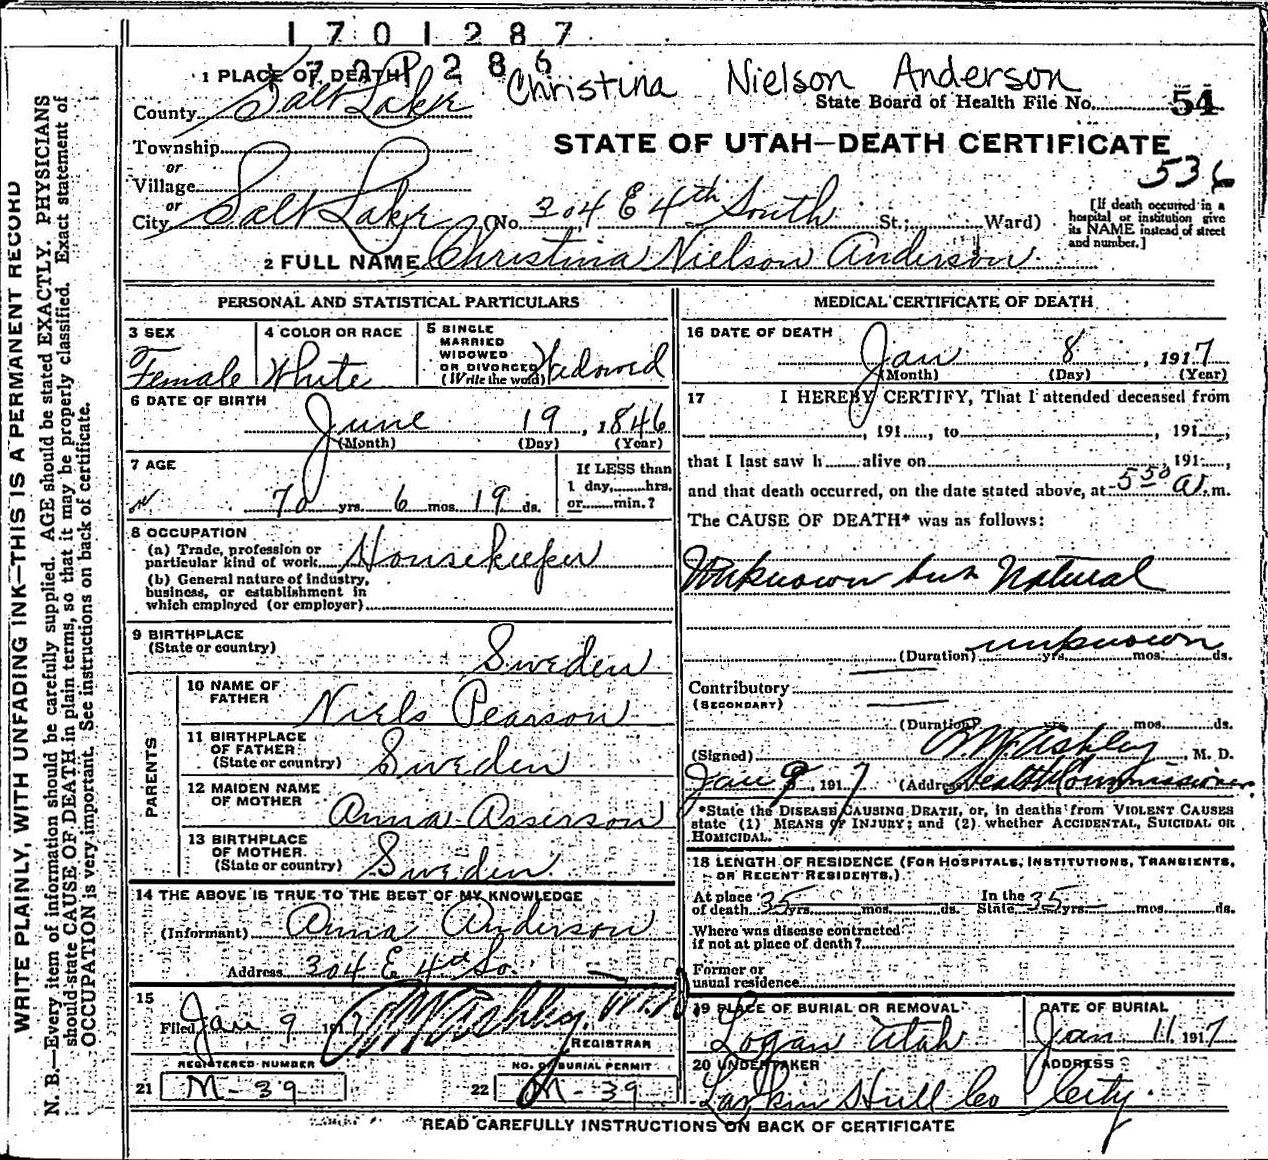 1701287
1701286
Christina Nielson Anderson
1 PLACE OF DEATH
State Board of Health File No. 54
County Salt Lake
STATE OF UTAH—DEATH CERTIFICATE
Township
or
536
Village
or
City Salt Lake (No. 304 E 4th South St.; Ward)
[If death occurred in a
hospital or institution give
its NAME instead of street
and number.]
2 FULL NAME Christina Nielson Anderson
PERSONAL AND STATISTICAL PARTICULARS
3 SEX
Female
4 COLOR OR RACE
White
5 SINGLE
MARRIED
WIDOWED
OR DIVORCED
(Write the word) Widowed
6 DATE OF BIRTH
June 19, 1846
(Month) (Day) (Year)
7 AGE
70 yrs. 6 mos. 19 ds.
If LESS than
1 day, hrs.
or min.?
8 OCCUPATION
(a) Trade, profession or
particular kind of work Housekeeper
(b) General nature of industry,
business, or establishment in
which employed (or employer)
9 BIRTHPLACE
(State or country) Sweden
PARENTS
10 NAME OF
FATHER Niels Pearson
11 BIRTHPLACE
OF FATHER
(State or country) Sweden
12 MAIDEN NAME
OF MOTHER Anna Asserson
13 BIRTHPLACE
OF MOTHER
(State or country) Sweden
14 THE ABOVE IS TRUE TO THE BEST OF MY KNOWLEDGE
(Informant) Anna Anderson
Address 304 E 4th So.
15
Filed Jan 9 1917 Ashley, M.D.
REGISTRAR
REGISTERED NUMBER
21 M-39
NO. OF BURIAL PERMIT
22 M-39
MEDICAL CERTIFICATE OF DEATH
16 DATE OF DEATH
Jan 8, 1917
(Month) (Day) (Year)
17 I HEREBY CERTIFY, That I attended deceased from
, 191 , to , 191 ,
that I last saw h alive on 191 ,
and that death occurred, on the date stated above, at 5 50 a. m.
The CAUSE OF DEATH* was as follows:
Unknown but Natural
(Duration) unknown yrs. mos. ds.
Contributory
(SECONDARY)
(Duration) yrs. mos. ds.
(Signed) Ashley, M. D.
Jan 9, 1917 (Address) Health Commissioner.
*State the DISEASE CAUSING DEATH, or, in deaths from VIOLENT CAUSES
state (1) MEANS OF INJURY; and (2) whether ACCIDENTAL, SUICIDAL OR
HOMICIDAL.
18 LENGTH OF RESIDENCE (FOR HOSPITALS, INSTITUTIONS, TRANSIENTS,
OR RECENT RESIDENTS.)
At place
of death 35 yrs. mos. ds.
In the
State 35 yrs. mos. ds.
Where was disease contracted
if not at place of death?
Former or
usual residence
19 PLACE OF BURIAL OR REMOVAL
Logan Utah
DATE OF BURIAL
Jan 11 1917
20 UNDERTAKER
Larkin Hull Co
ADDRESS
City.
READ CAREFULLY INSTRUCTIONS ON BACK OF CERTIFICATE
WRITE PLAINLY, WITH UNFADING INK—THIS IS A PERMANENT RECORD
N. B.—Every item of information should be carefully supplied. AGE should be stated EXACTLY. PHYSICIANS
should state CAUSE OF DEATH in plain terms, so that it may be properly classified. Exact statement of
OCCUPATION is very important. See instructions on back of certificate.